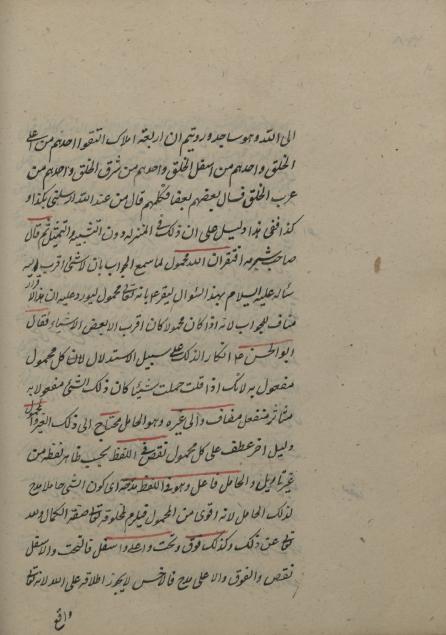 الی الله وهو ساجد ورویتم ان اربعة املاک التقوا احدهم من اعلی
الخلق واحدهم من اسفل الخلق واحدهم من شرق الخلق واحدهم من
غرب الخلق فسال بعضهم بعضا فکلهم قال من عند الله ارسلنی بکذا و
کذا ففی هذا دلیل علی ان ذلک فی المنزلة دون التشبیه والتمثیل ثم قال
صاحب شبرمه افتقر ان الله محمول لما سمع الجواب بان لا شئ اقرب
ساله علیه السلام بهذا السؤال لیقر ع بانه تعالی محمول لیورد علیه ان هذا
مناف للجواب لانه اذا کان محمولا کان اقرب الا بعض الاشیاء فقال
ابو الحسن ع انکارا لذلک علی سبیل الاستدلال لان کل محمول
مفعول به لانک اذا قلت حملت شیئا کان ذلک الشئ مفعولا به
متاثر منفعل مضاف الی غیره وهو الحامل محتاج الی ذلک الغیر والمحمول
دلیل اخر عطف علی کل محمول نقص فی اللفظ بحسب ظاهر لفظه من
غیر تاویل والحامل فاعل وهو فی اللفظ مدحة ای کون الشئ حاملا مدح
لذلک الحامل لانه اقوی من المحمول فیلزم مخلوقه تعالی صفة الکمال
تعالی عن ذلک وکذلک فوق وتحت واعلی واسفل فالتحت والاسفل
نقص والفوق والاعلی مدح فالاخس لا یجوز اطلاقه علی الله لانه تعالی
واقع